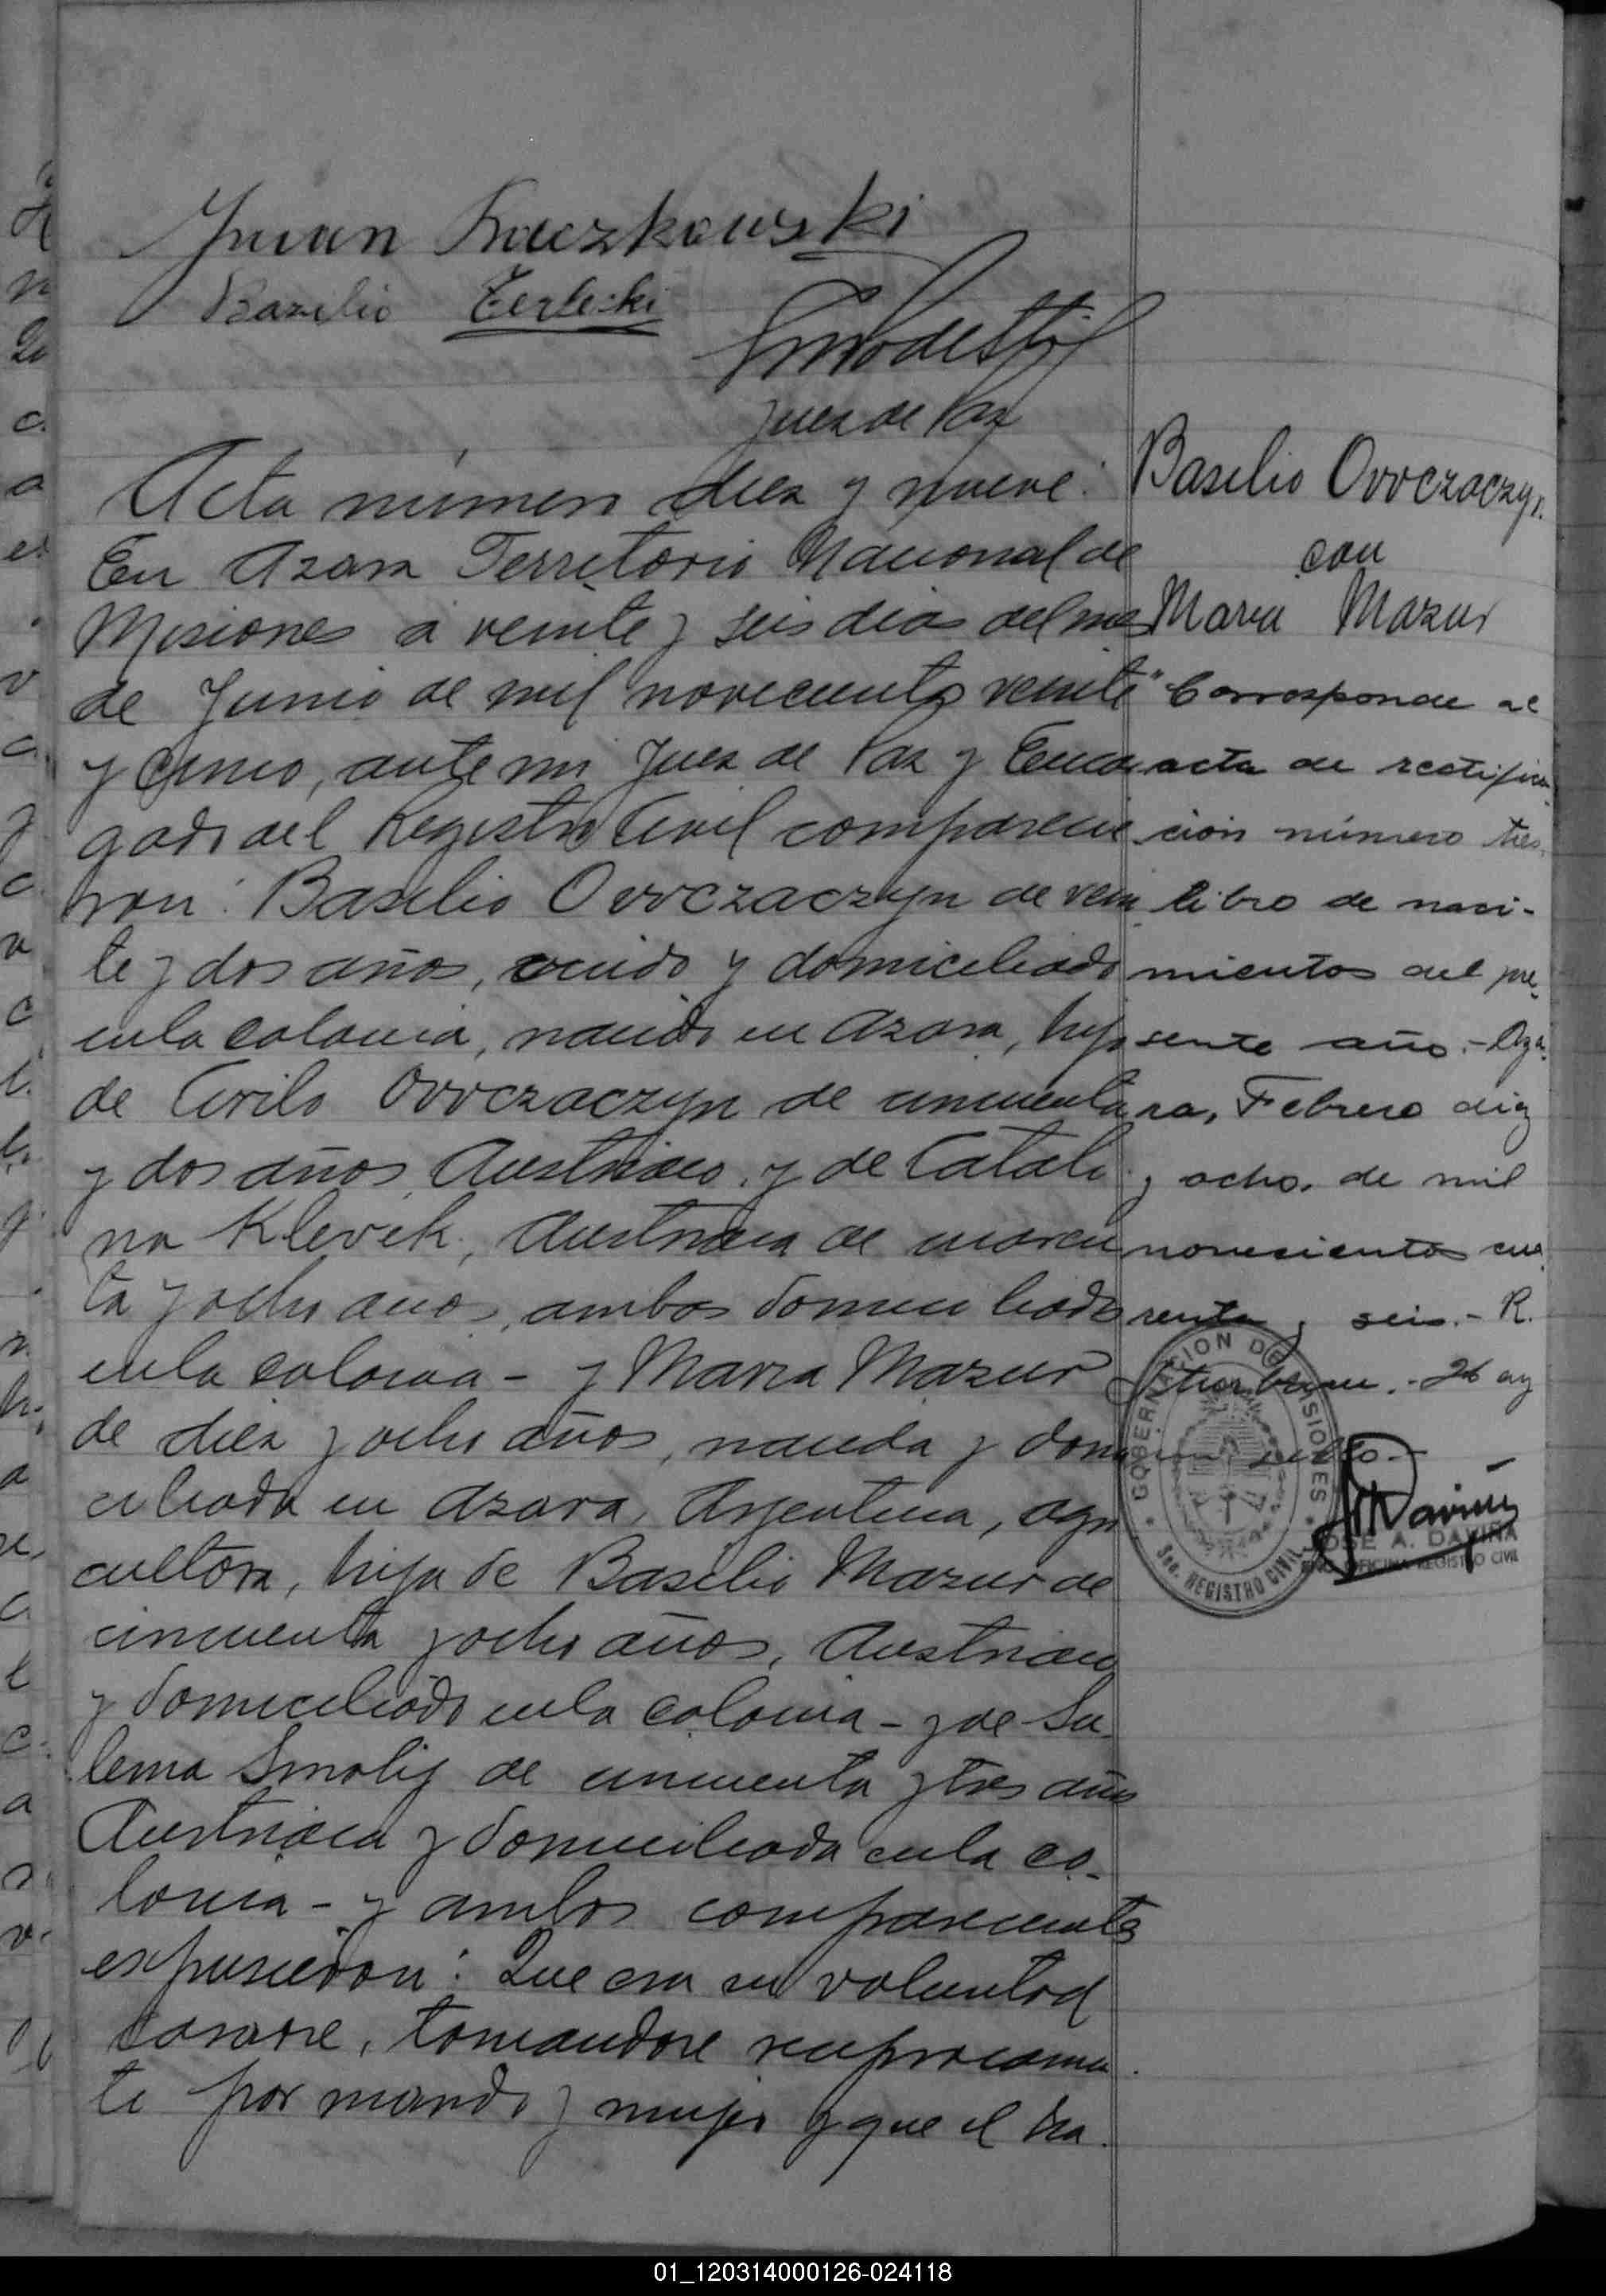 Juan Kaczkowski
Basilio Terlecki
Juez de Paz
Acta número diez y nueve:
En Azara Territorio Nacional de
Misiones a veinte y seis dias del mes
de Junio de mil novecientos veinte
y cinco, ante mi Juez de Paz y Encar
gado del Registro Civil comparecie
ron: Basilio Owczaczyn de vein
te y dos años, nacido y domiciliado
en la colonia, nacido en Azara, hijo
de Cirilo Owczaczyn de cincuenta
y dos años, Austriaco, y de Catali
na Klevek, Austriaca de cuaren
ta y ocho años, ambos domiciliados
en la colonia - y Maria Mazur
de diez y ocho años, nacida y domi
ciliada en Azara, Argentina, agri
cultora, hija de Basilio Mazur de
cincuenta y ocho años, Austriaco
y domiciliado en la colonia - y de Su
lema Smolij de cincuenta y tres años
Austriaca y domiciliada en la co-
lonia - y ambos comparecientes
expusieron: Que era su voluntad
casarse, tomandose reciprocamen
te por marido y mujer y que el dia
Basilio Owczaczyn
con
Maria Mazur
"Corresponde al
acta de rectifica
ción número tres,
libro de naci-
mientos del pre-
sente año.- Aza
ra, Febrero diez
y ocho, de mil
novecientos cua
renta y seis.- R.
GOBERNACION DE MISIONES
Sec. REGISTRO CIVIL
JOSE A. DAVIÑA
ENC. OFICINA REGISTRO CIVIL
01_120314000126-024118